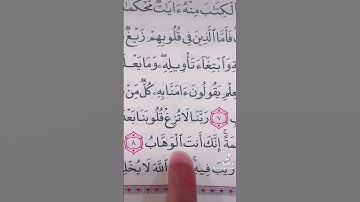 ٱلْكِتَٰبَ مِنْهُ ءَايَٰتٌ
فَأَمَّا ٱلَّذِينَ فِى قُلُوبِهِمْ زَيْغٌ
وَٱبْتِغَآءَ تَأْوِيلِهِۦ ۗ وَمَا
يَقُولُونَ ءَامَنَّا بِهِۦ كُلٌّ مِّنْ
٧ رَبَّنَا لَا تُزِغْ قُلُوبَنَا بَعْدَ
إِنَّكَ أَنتَ ٱلْوَهَّابُ ٨
رَيْبَ فِيهِ ۚ ٱللَّهَ لَا